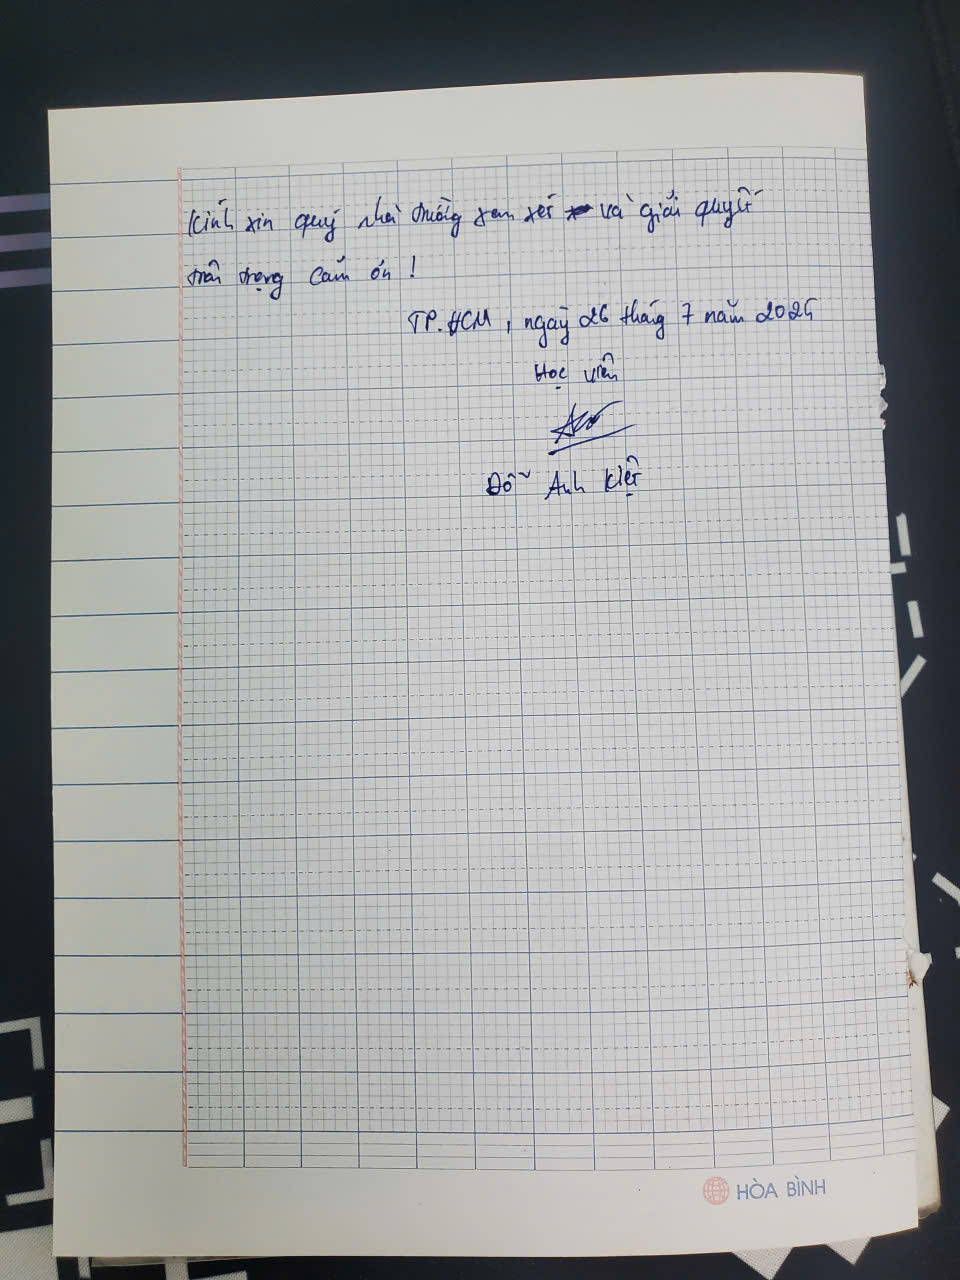 Kính xin quý nhà trường xem xét và giải quyết
trân trọng cảm ơn !
TP.HCM, ngày 26 tháng 7 năm 2025
Học viên
Đỗ Anh Kiệt
HÒA BÌNH